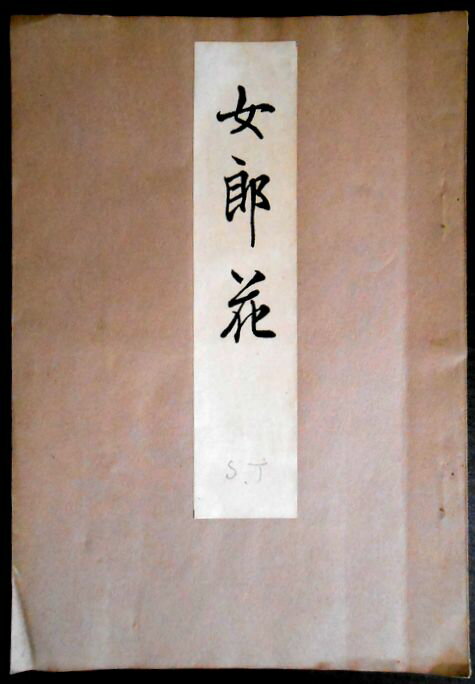 女郎花
S.T